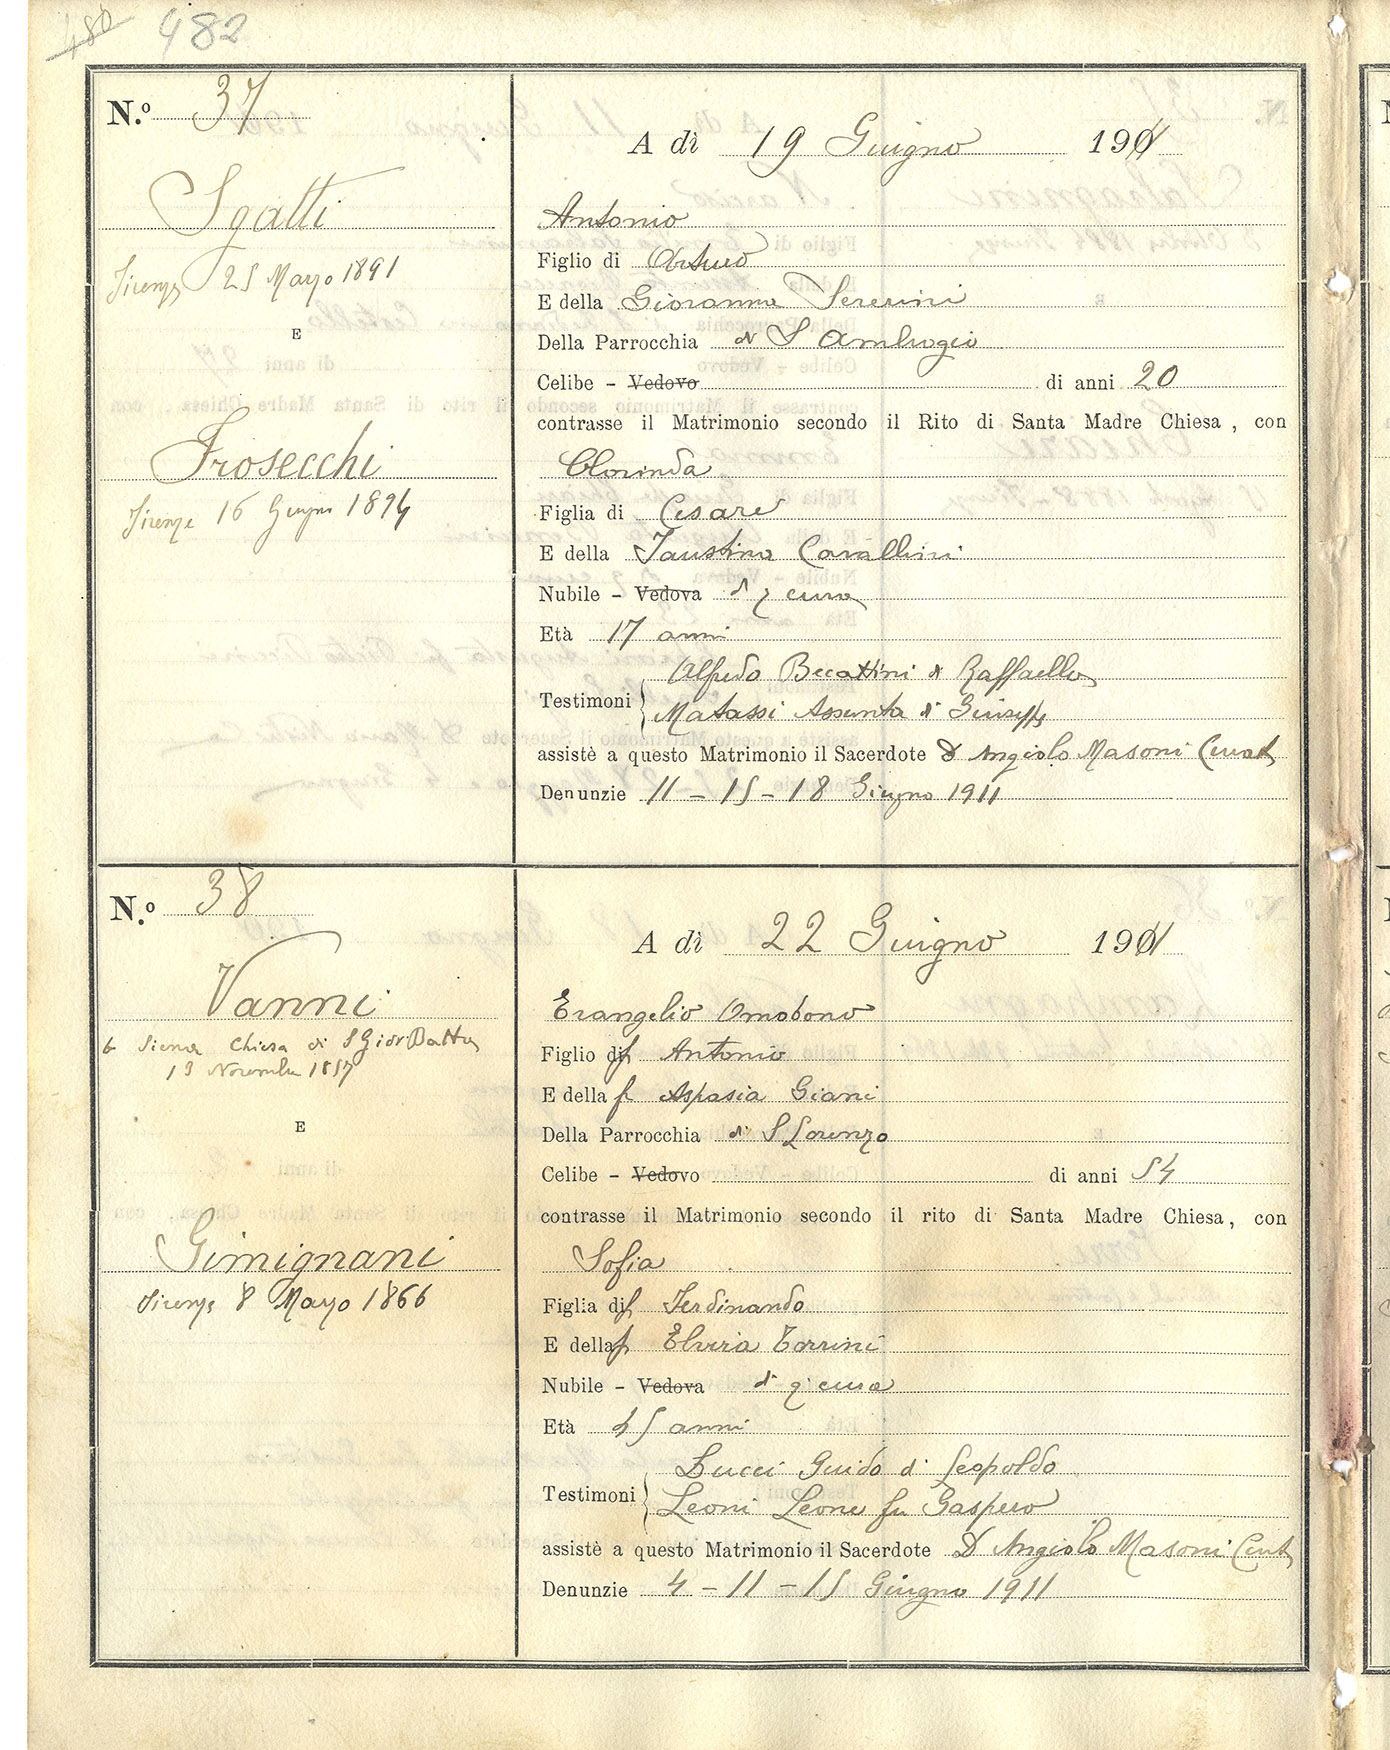 480 482
N.º 37
A dì 19 Giugno 1911
Sgatti
Firenze 25 Marzo 1891
E
Frosecchi
Firenze 16 Giugno 1894
Antonio
Figlio di Arturo
E della Giovanna Severini
Della Parrocchia di S Ambrogio
Celibe - Vedovo di anni 20
contrasse il Matrimonio secondo il Rito di Santa Madre Chiesa, con
Clorinda
Figlia di Cesare
E della Faustina Cavallini
Nubile - Vedova di q cura
Età 17 anni
Testimoni Alfredo Becattini di Raffaello
Matassi Assunta di Giuseppe
assistè a questo Matrimonio il Sacerdote D Angiolo Masoni Curat
Denunzie 11 - 15 - 18 Giugno 1911
N.º 38
A dì 22 Giugno 1911
Vanni
Siena Chiesa di S Giov Batta
13 Novembre 1857
E
Gimignani
Firenze 8 Marzo 1866
Evangelio Omobono
Figlio di f Antonio
E della f Aspasia Giani
Della Parrocchia di S Lorenzo
Celibe - Vedovo di anni 54
contrasse il Matrimonio secondo il rito di Santa Madre Chiesa, con
Sofia
Figlia di f Ferdinando
E della f Elvira Torrini
Nubile - Vedova di q cura
Età 45 anni
Testimoni Bucci Guido di Leopoldo
Leoni Leone fu Gaspero
assistè a questo Matrimonio il Sacerdote D Angiolo Masoni Curt
Denunzie 4 - 11 - 15 Giugno 1911